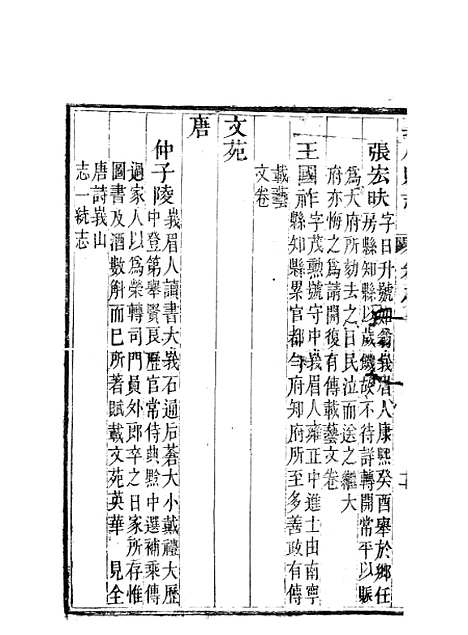 張宏昳字日升號峩眉人康熙癸酉舉於鄉任
房縣知縣以歲饑故不待詳轉開常平以賑
為大府所劾去之日民泣而送之繼大
府亦悔之為請開復有傳載藝文卷
王國祚字茂勲號守中峩眉人雍正中進士由南寧
縣知縣累官都勻府知府所至多善政有傳
載藝
文卷
文苑
唐
仲子陵峩眉人讀書大峩石通后蒼大小戴禮大歷
中登第舉賢良歷官常侍典黔中選補乘傳
過家人以為榮轉司門員外郎卒之日家所存惟
圖書及酒數斛而已所著賦載文苑英華 見全
唐詩峩山
志一統志